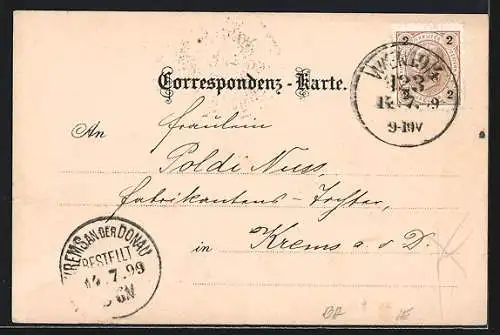 Correspondenz-Karte.
2 2
2 2
123
9-10V
An
Fräulein
Poldi Nuss,
Fabrikantens-Tochter,
in Krems a. d. D.
KREMS AN DER DONAU
BESTELLT
14.7.99
6N